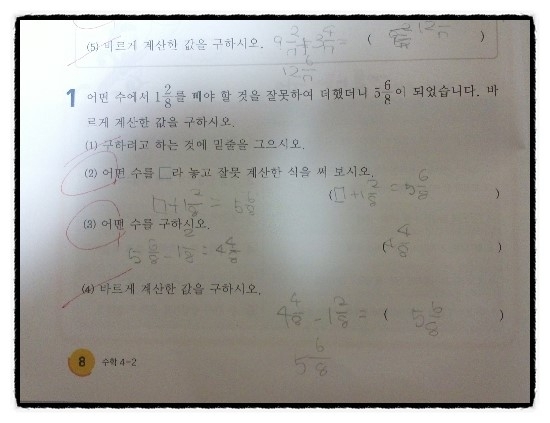 (5) 바르게 계산한 값을 구하시오. ( )
1 어떤 수에서 1 2/8를 빼야 할 것을 잘못하여 더했더니 5 6/8이 되었습니다. 바
르게 계산한 값을 구하시오.
(1) 구하려고 하는 것에 밑줄을 그으시오.
(2) 어떤 수를 □라 놓고 잘못 계산한 식을 써 보시오.
□+1 2/8 = 5 6/8 (□+1 2/8 = 5 6/8 )
(3) 어떤 수를 구하시오.
5 6/8 - 1 2/8 = 4 4/8 (4 4/8 )
(4) 바르게 계산한 값을 구하시오.
4 4/8 - 1 2/8 = ( 5 6/8 )
5 6/8
8 수학 4-2